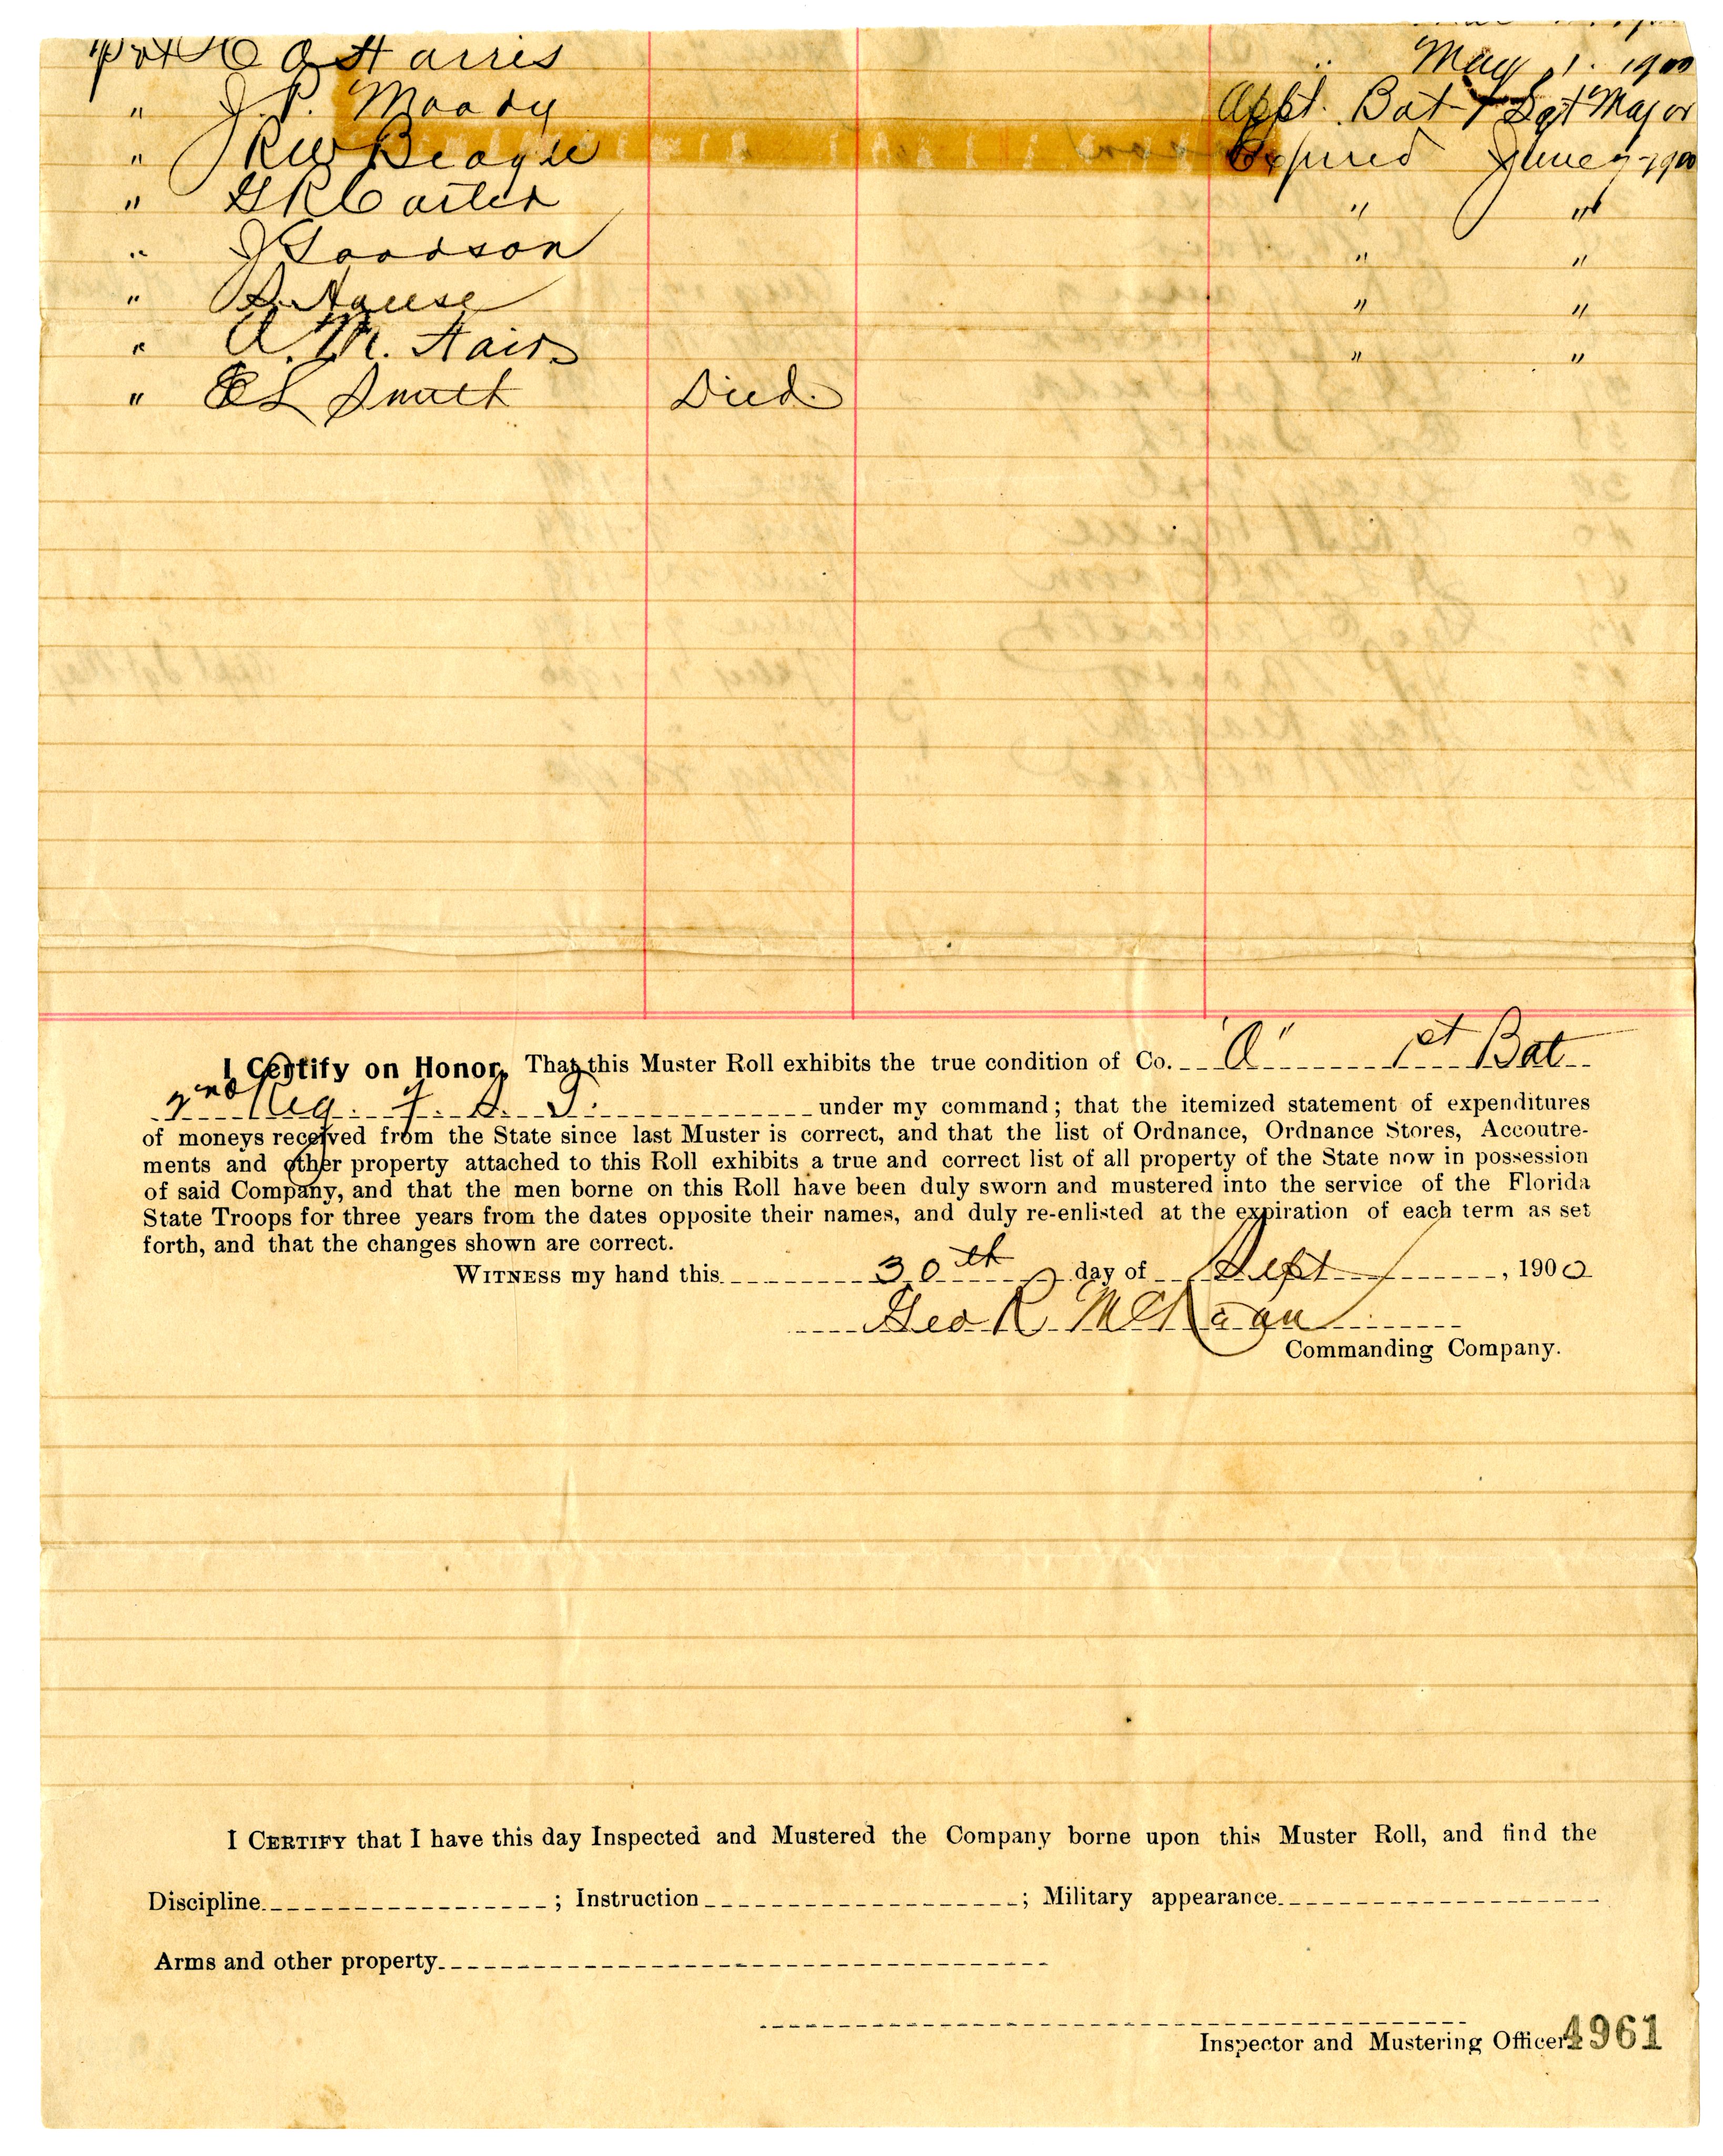 Pvt C A Harris " May 1. 1900
" J. P. Moody Appt. Bat Sgt Major
" R W Beagle Expired June 9-1900
" G R Carter " "
" J Goodson " "
" S. House " "
" A. M. Hair " "
" E L Smith Died.
I Certify on Honor, That this Muster Roll exhibits the true condition of Co. "A" 1st Bat
2nd Reg. F. S. T. under my command; that the itemized statement of expenditures
of moneys received from the State since last Muster is correct, and that the list of Ordnance, Ordnance Stores, Accoutre-
ments and other property attached to this Roll exhibits a true and correct list of all property of the State now in possession
of said Company, and that the men borne on this Roll have been duly sworn and mustered into the service of the Florida
State Troops for three years from the dates opposite their names, and duly re-enlisted at the expiration of each term as set
forth, and that the changes shown are correct.
WITNESS my hand this 30th day of Sept, 1900
Geo R
Commanding Company.
I CERTIFY that I have this day Inspected and Mustered the Company borne upon this Muster Roll, and find the
Discipline ; Instruction ; Military appearance
Arms and other property
Inspector and Mustering Officer
4961